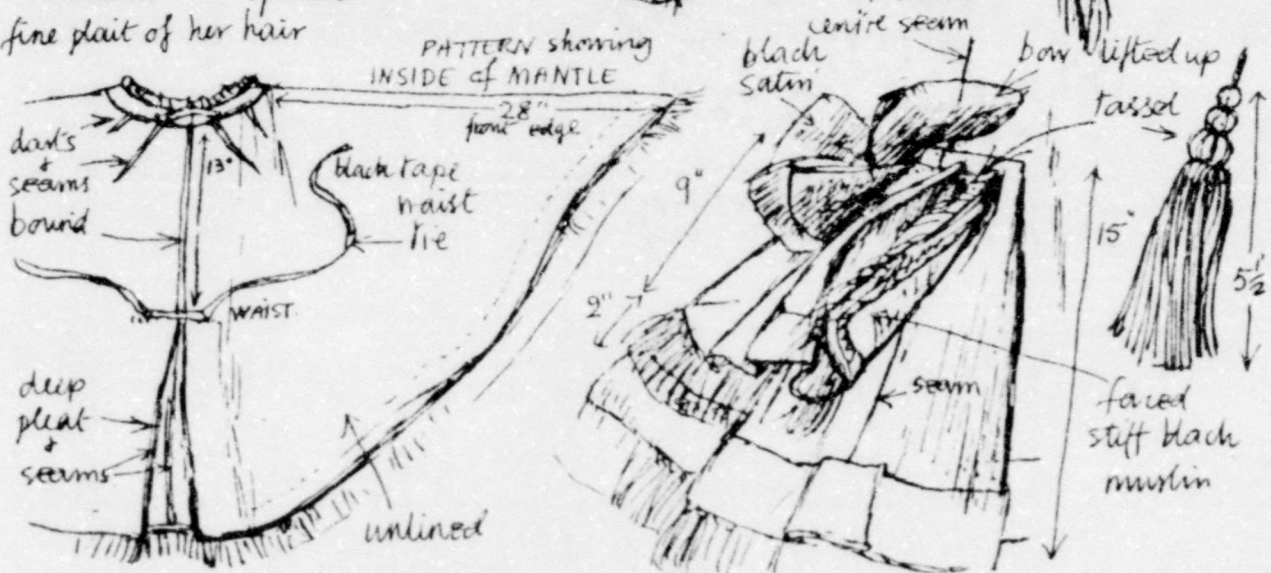 fine plait of her hair
PATTERN showing
INSIDE of MANTLE
28"
front edge
darts
&
seams
bound
13"
black tape
waist
tie
WAIST.
deep
pleat
&
seams
unlined
centre seam
black
satin
bow lifted up
tassel
9"
2"
15"
5½
seam
faced
stiff black
muslin